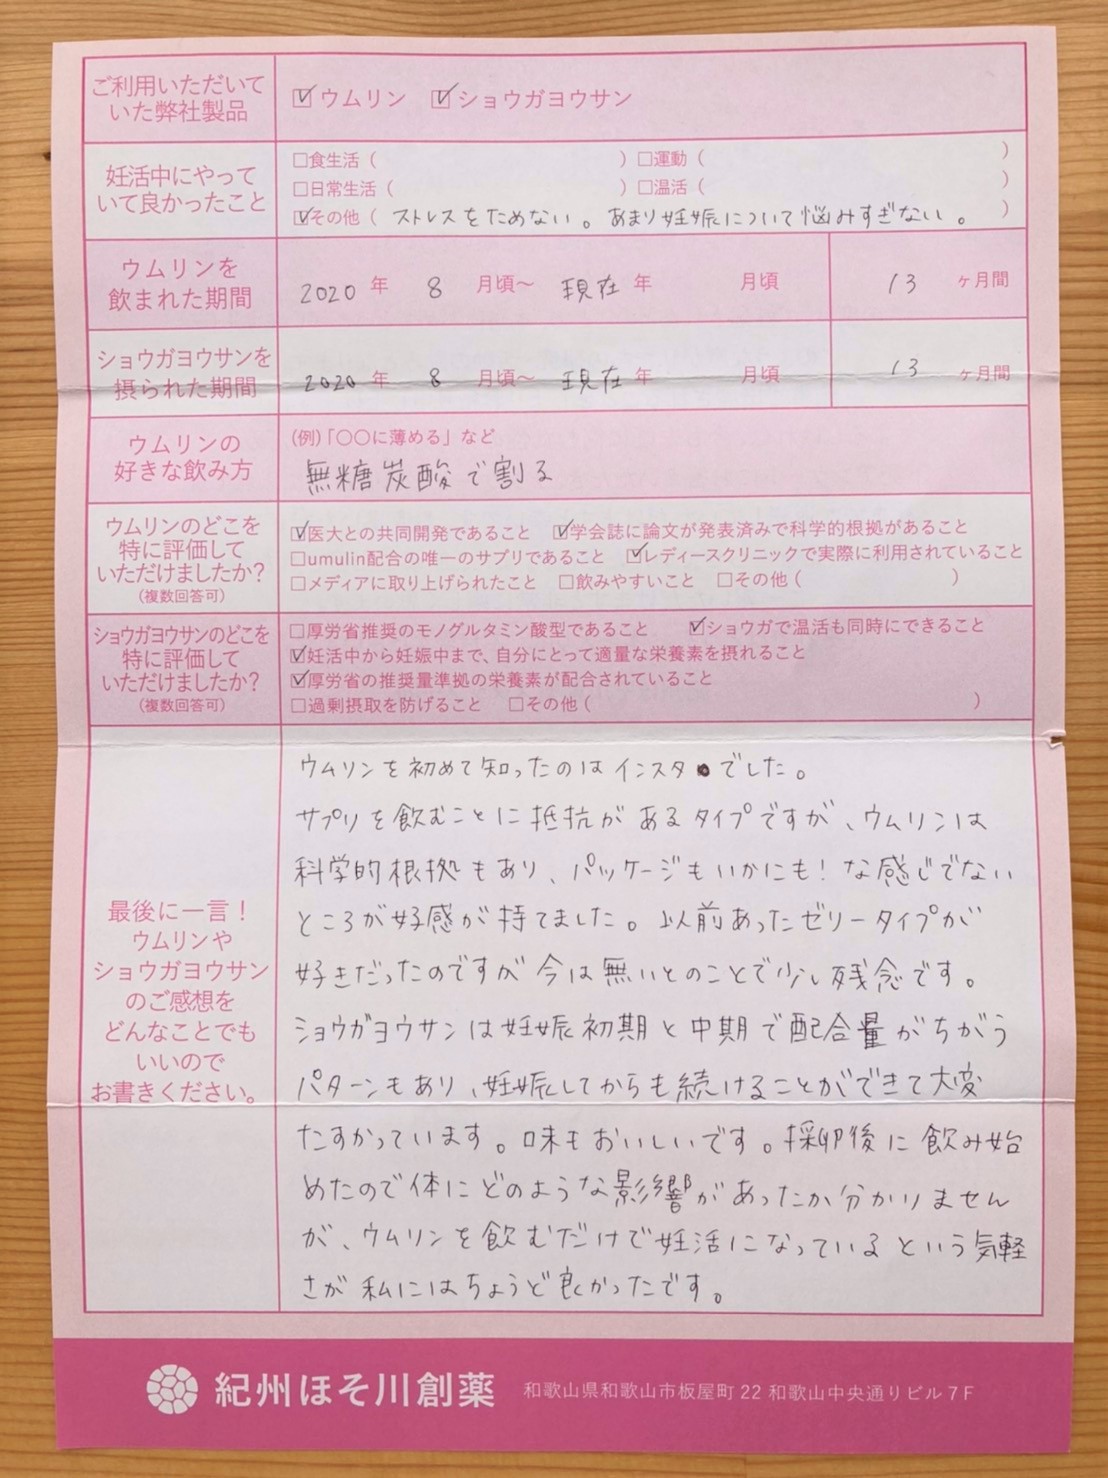 ご利用いただいて
いた弊社製品
☑ウムリン ☑ショウガヨウサン
妊活中にやって
いて良かったこと
□食生活( ) □運動( )
□日常生活( ) □温活( )
☑その他( ストレスをためない。あまり妊娠について悩みすぎない。 )
ウムリンを
飲まれた期間
2020 年 8 月頃〜 現在 年 月頃 13 ヶ月間
ショウガヨウサンを
摂られた期間
2020 年 8 月頃〜 現在 年 月頃 13 ヶ月間
ウムリンの
好きな飲み方
(例)「〇〇に薄める」など
無糖炭酸で割る
ウムリンのどこを
特に評価して
いただけましたか?
(複数回答可)
☑医大との共同開発であること ☑学会誌に論文が発表済みで科学的根拠があること
□umulin配合の唯一のサプリであること ☑レディースクリニックで実際に利用されていること
□メディアに取り上げられたこと □飲みやすいこと □その他( )
ショウガヨウサンのどこを
特に評価して
いただけましたか?
(複数回答可)
□厚労省推奨のモノグルタミン酸型であること ☑ショウガで温活も同時にできること
☑妊活中から妊娠中まで、自分にとって適量な栄養素を摂れること
☑厚労省の推奨量準拠の栄養素が配合されていること
□過剰摂取を防げること □その他( )
最後に一言!
ウムリンや
ショウガヨウサン
のご感想を
どんなことでも
いいので
お書きください。
ウムリンを初めて知ったのはインスタでした。
サプリを飲むことに抵抗があるタイプですが、ウムリンは
科学的根拠もあり、パッケージもいかにも!な感じでない
ところが好感が持てました。以前あったゼリータイプが
好きだったのですが今は無いとのことで少し残念です。
ショウガヨウサンは妊娠初期と中期で配合量がちがう
パターンもあり、妊娠してからも続けることができて大変
たすかっています。味もおいしいです。採卵後に飲み始
めたので体にどのような影響があったか分かりません
が、ウムリンを飲むだけで妊活になっているという気軽
さが私にはちょうど良かったです。
紀州ほそ川創薬 和歌山県和歌山市板屋町22 和歌山中央通りビル7F